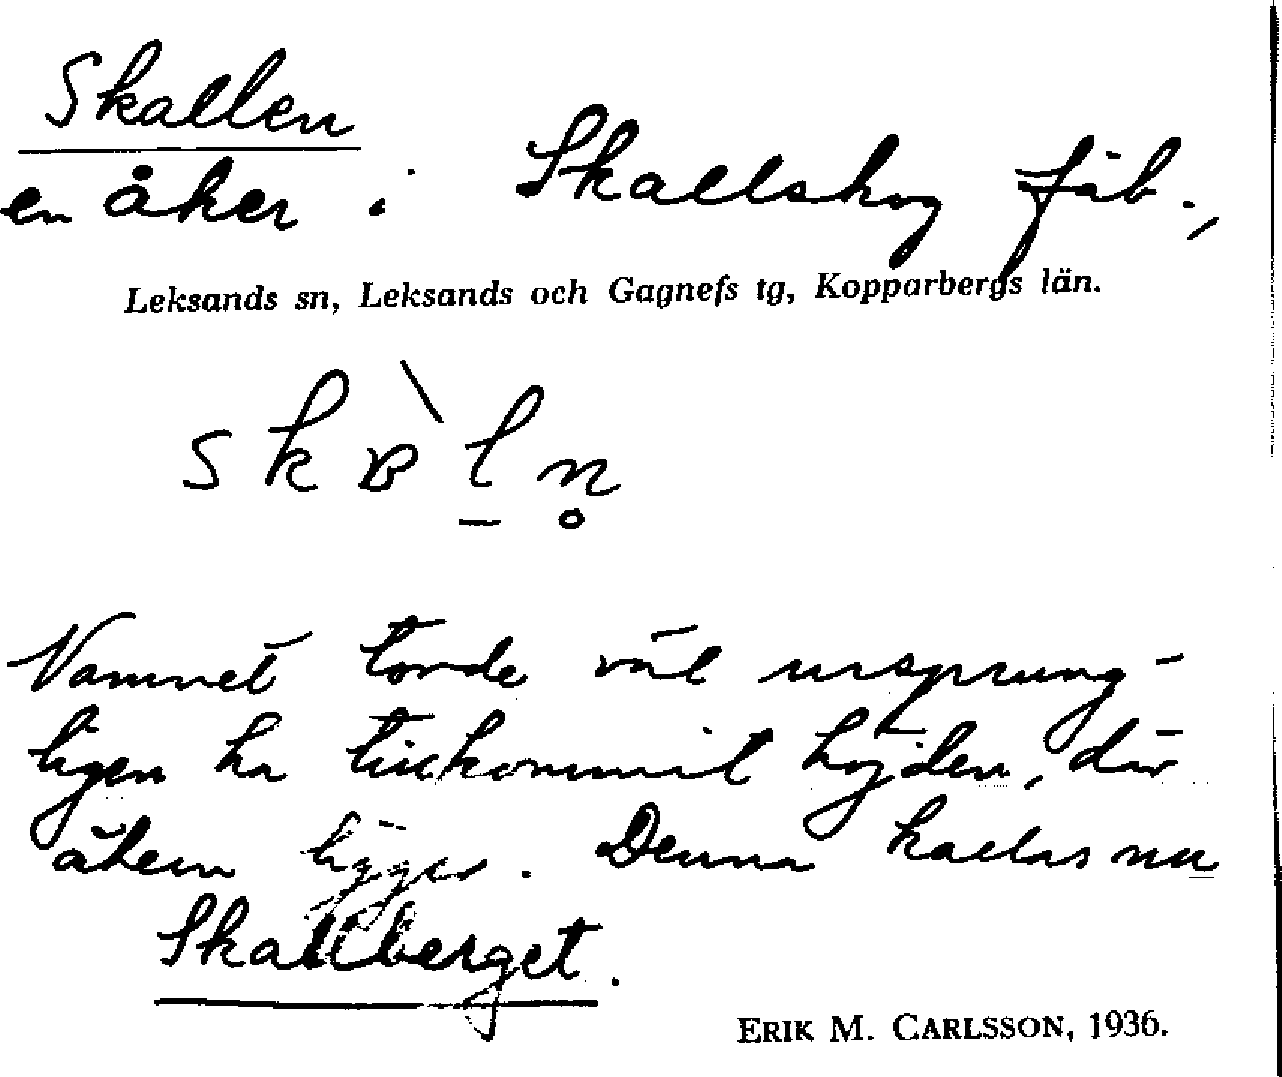 Skallen
en åker i Skallskog fäb.,
Leksands sn, Leksands och Gagnefs tg, Kopparbergs län.
skʙ̀l̠n̥
Namnet torde väl ursprung-
ligen ha tillkommit höjden, där
åkern ligger. Denna kallas nu
Skallberget.
ERIK M. CARLSSON, 1936.